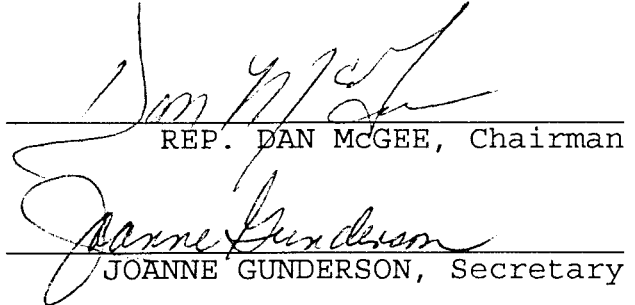 Dan McGee
REP. DAN McGEE, Chairman
Joanne Gunderson
JOANNE GUNDERSON, Secretary